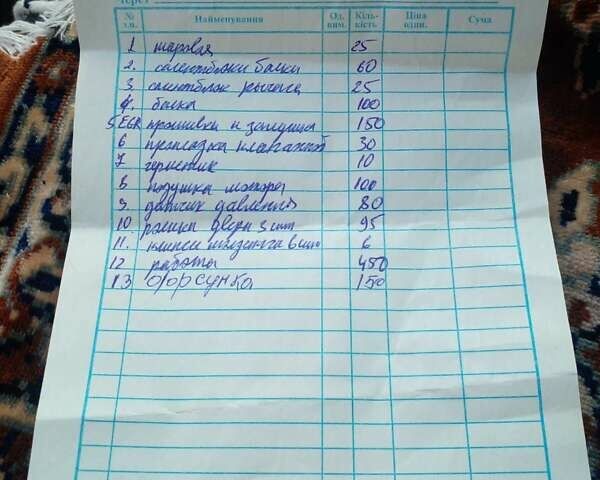 Через
№ з.п. Найменування Од. вим. Кіль-кість Ціна один. Сума
1 шаровая 25
2. сайлентблоки балки 60
3 сайлентблок рычага 25
4. балка 100
5 EGR прошивка и заглушка 150
6 прокладка клапанной 30
7 герметик 10
8 подушка мотора 100
9. датчик давления 80
10 двери 3 шт 95
11. 6
12 работы 450
13 форсунка 150